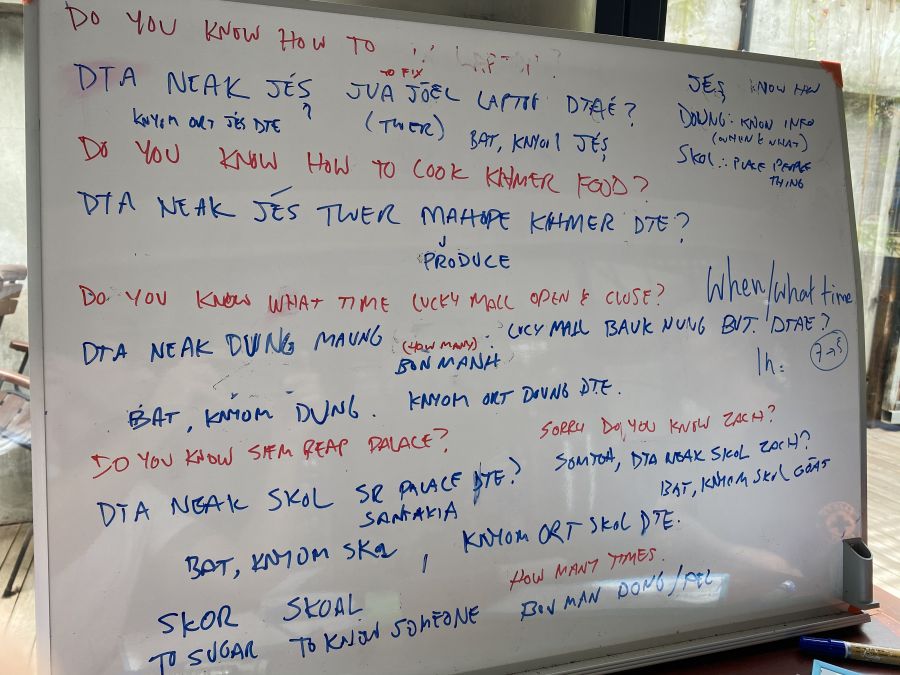 DO YOU KNOW HOW TO LAPTOP?
DTA NEAK JÉS JUA JÖEL LAPTOP DTAE?
TO FIX
KNYOM ORT JÉS DTE
?
(TWER)
BAT, KNYOM JÉS
JÉS KNOW HOW
DOUNG: KNOW INFO
(WHEN & WHAT)
SKOL: PLACE PEOPLE
THING
DO YOU KNOW HOW TO COOK KHMER FOOD?
DTA NEAK JÉS TWER MAHOPE KHMER DTE?
PRODUCE
DO YOU KNOW WHAT TIME LUCKY MALL OPEN & CLOSE?
When/what time
DTA NEAK DUNG MAUNG (HOW MANY) : LUCY MALL BAUK NUNG BUT. DTAE?
BON MANH
1h:
7→8
BAT, KNYOM DUNG. KNYOM ORT DOUNG DTE.
DO YOU KNOW SIEM REAP PALACE?
SORRY DO YOU KNOW ZACH?
DTA NEAK SKOL SR PALACE DTE?
SANTAKIA
SOMTOA, DTA NEAK SKOL ZACH?
BAT, KNYOM SKOL GÖAT
BAT, KNYOM SKOL, KNYOM ORT SKOL DTE.
HOW MANY TIMES.
SKOR SKOAL BON MAN DONG/PEL
TO SUGAR TO KNOW SOMEONE